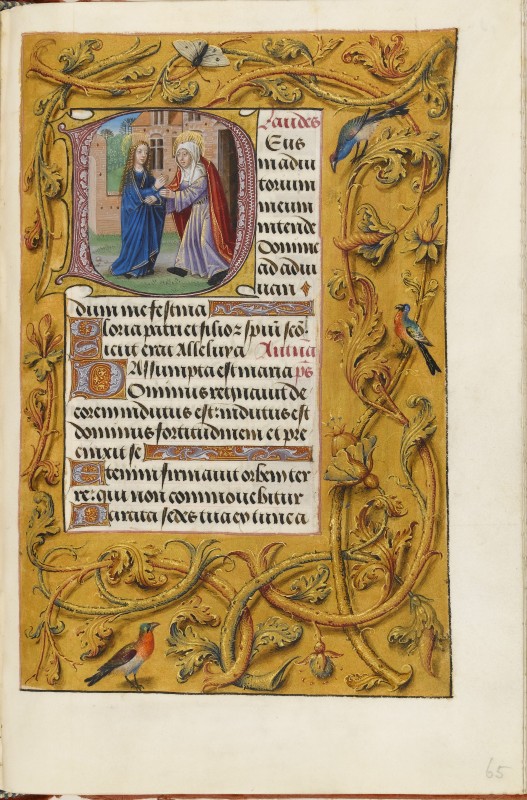 Laudes
Deus
in adiu
torium
meum
intende
Domine
ad adiu
uandum
dum me festina
Gloria patri et filio z spiri sco.
Sicut erat Alleluya Antiua
Assumpta est maria ps
Dominus regnauit de
corem indutus est: indutus est
dominus fortitudinem et pre
cinxit se
Etenim firmauit orbem ter
re: qui non commouebitur
Parata sedes tua ex tunc a
65